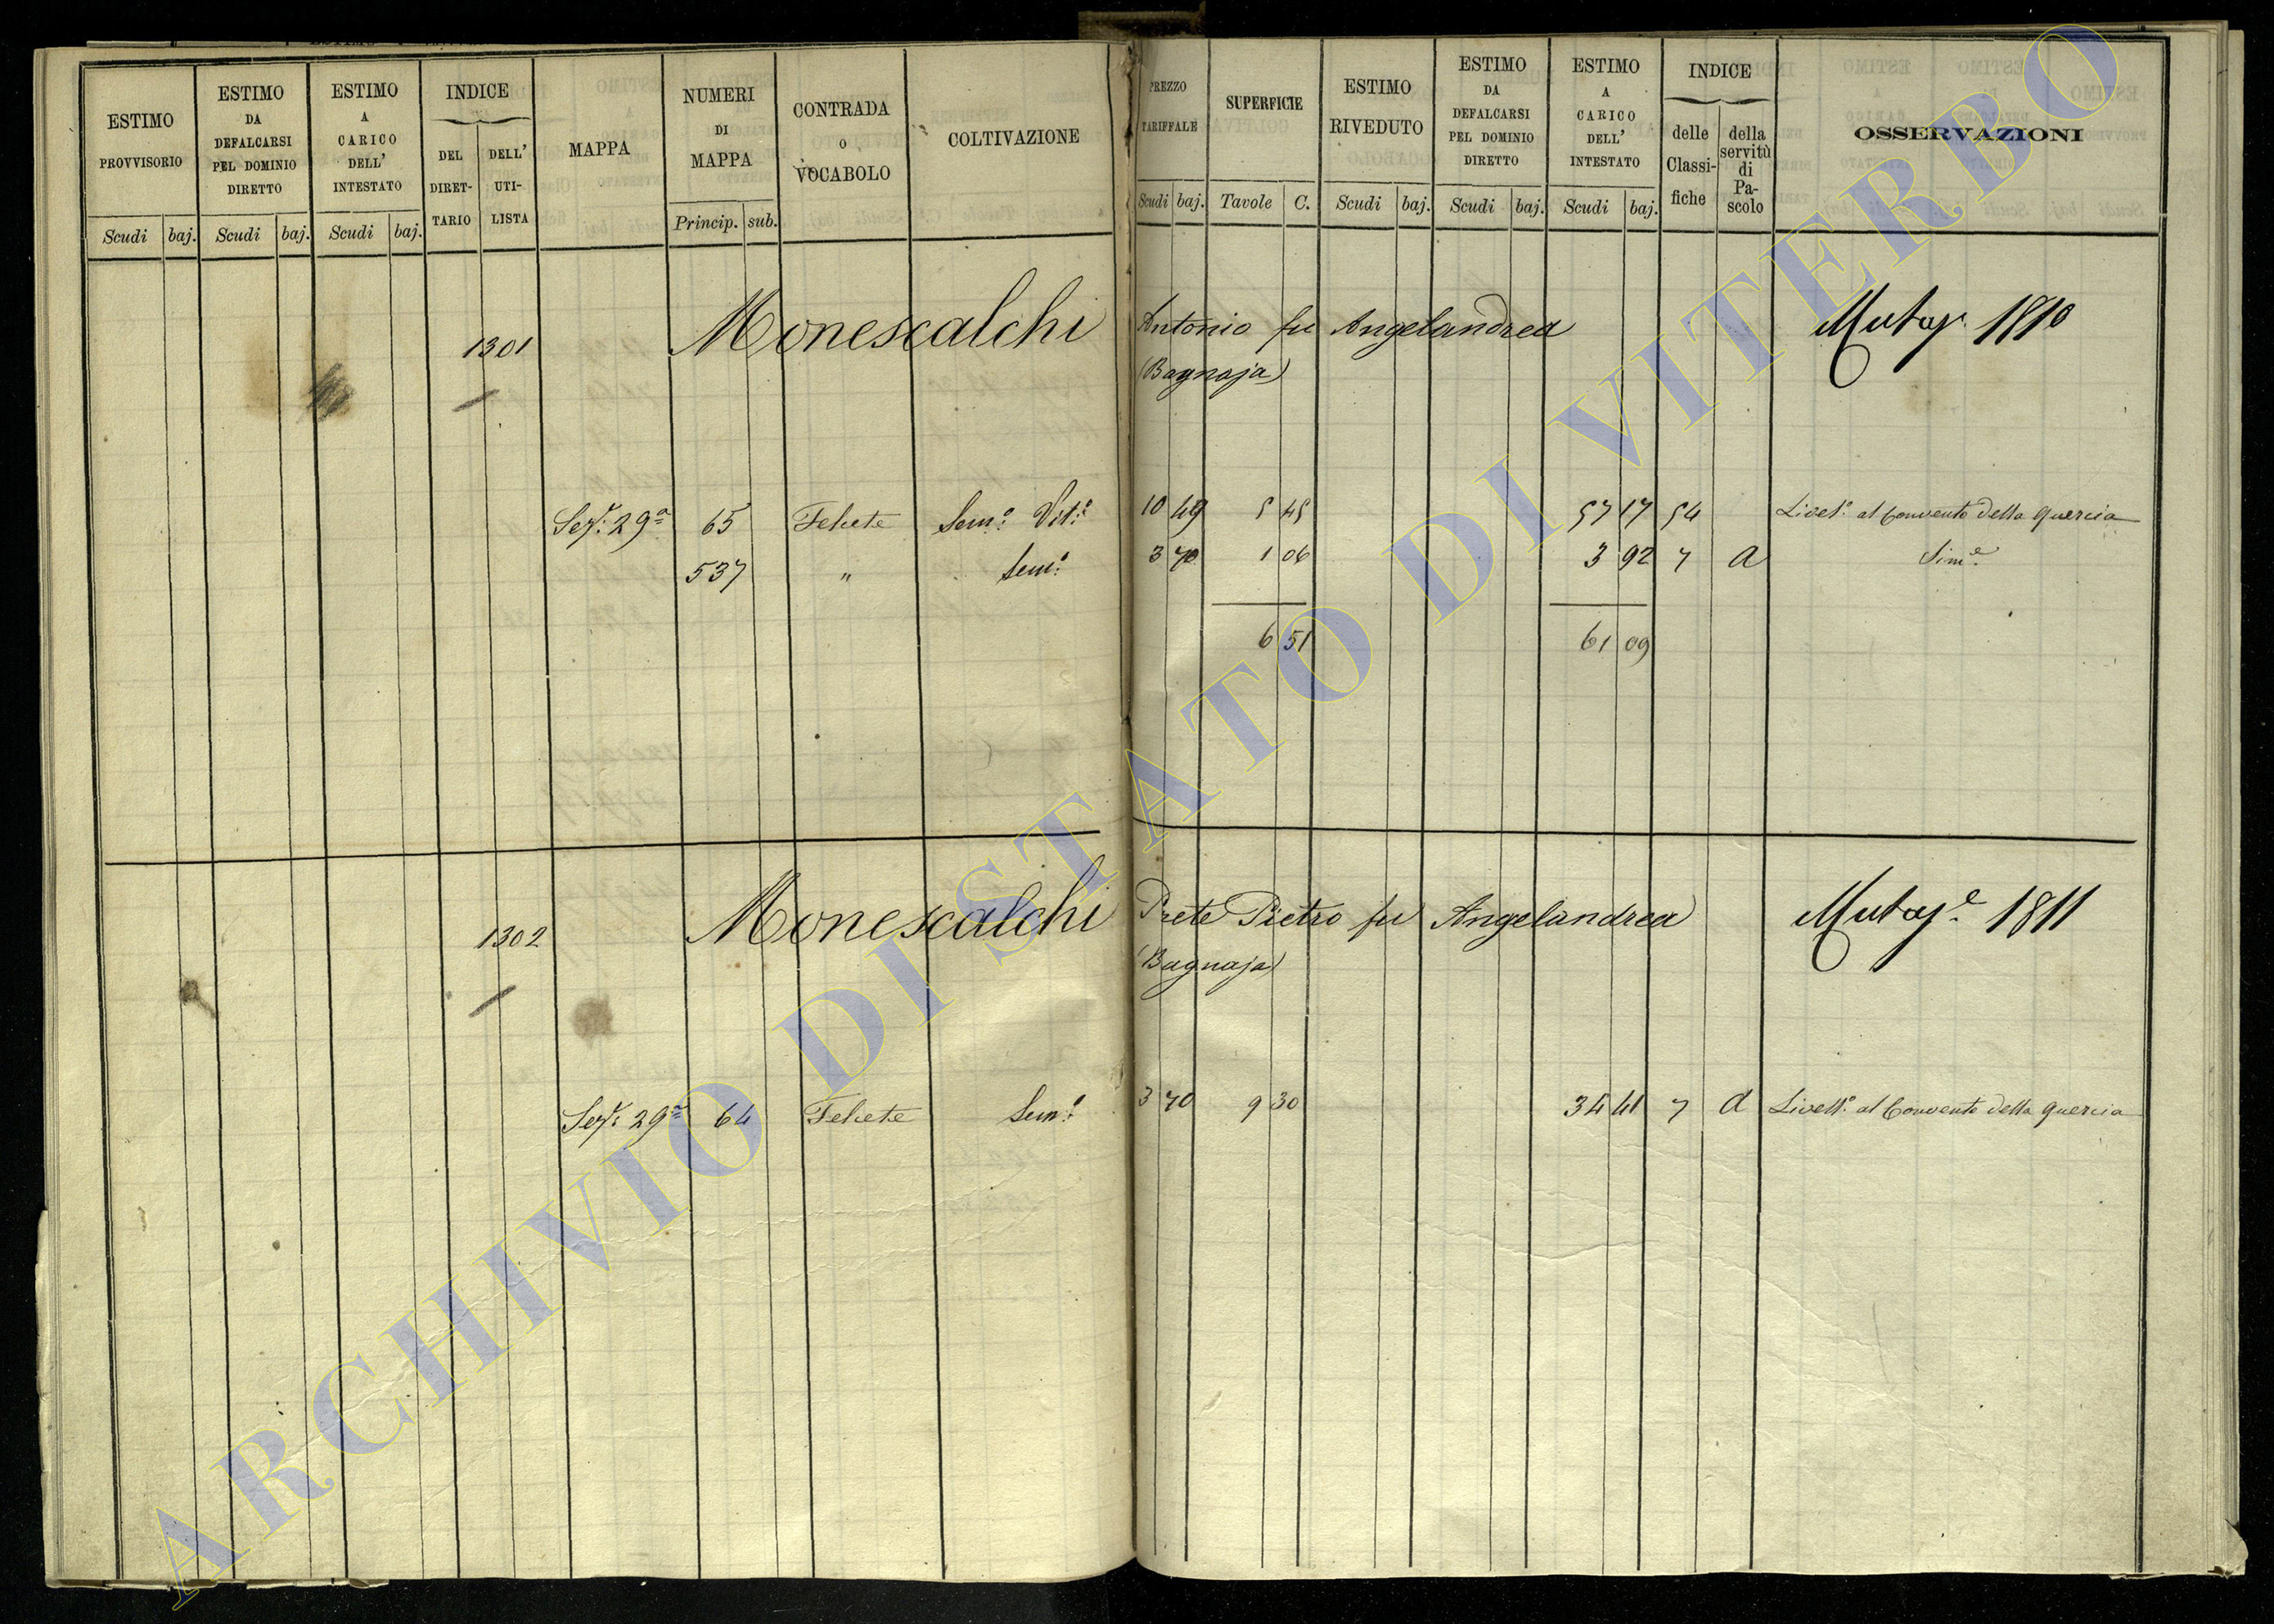 ESTIMO PROVVISORIO
Scudi baj.
ESTIMO DA DEFALCARSI PEL DOMINIO DIRETTO
Scudi baj.
ESTIMO A CARICO DELL' INTESTATO
Scudi baj.
INDICE
DEL DIRET-
TARIO
DELL' UTI-
LISTA
MAPPA
NUMERI DI MAPPA
Princip. sub.
CONTRADA O VOCABOLO
COLTIVAZIONE
PREZZO TARIFFALE
Scudi baj.
SUPERFICIE
Tavole C.
ESTIMO RIVEDUTO
Scudi baj.
ESTIMO DA DEFALCARSI PEL DOMINIO DIRETTO
Scudi baj.
ESTIMO A CARICO DELL' INTESTATO
Scudi baj.
INDICE
delle Classi-
fiche
della servitù di Pa-
scolo
OSSERVAZIONI
1301 Monescalchi Antonio fu Angelandrea 1810
(Bagnaja)
Sez: 29a 65 Felcete Sem.o Vit.o 10 49 5 45 57 17 54 Livel.o al Convento della Quercia
537 " Sem.o 3 70 1 06 3 92 7 a Sim.e
6 51 61 09
1302 Monescalchi Prete Pietro fu Angelandrea 1811
(Bagnaja)
Sez: 29a 64 Felcete Sem.o 3 70 9 30 34 41 7 a Livell.o al Convento della Quercia
ARCHIVIO DI STATO DI VITERBO